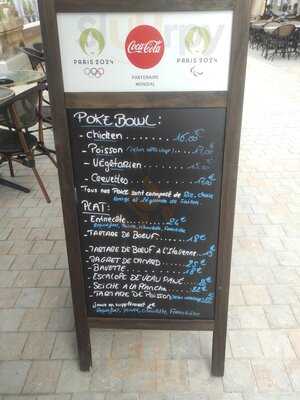 PARIS 2024
Coca-Cola
PARIS 2024
PARTENAIRE
MONDIAL
POKE BOWL :
- chicken ........ 16.00€
- Poisson
- Végétarien
- Crevettes
Tous nos Poke sont composé de Riz, Choux
Rouge et légumes de Saison
PLAT :
- Entrecôte
- TARTARE DE BOEUF 18€
- TARTARE DE BOEUF A L'Italienne
- MAGRET DE CANARD
- BAVETTE 18€
- ESCALOPE DE VEAU PANÉ
- SEICHE A LA PLANCHA
- TARTARE DE POISSON
Sauce en supplément